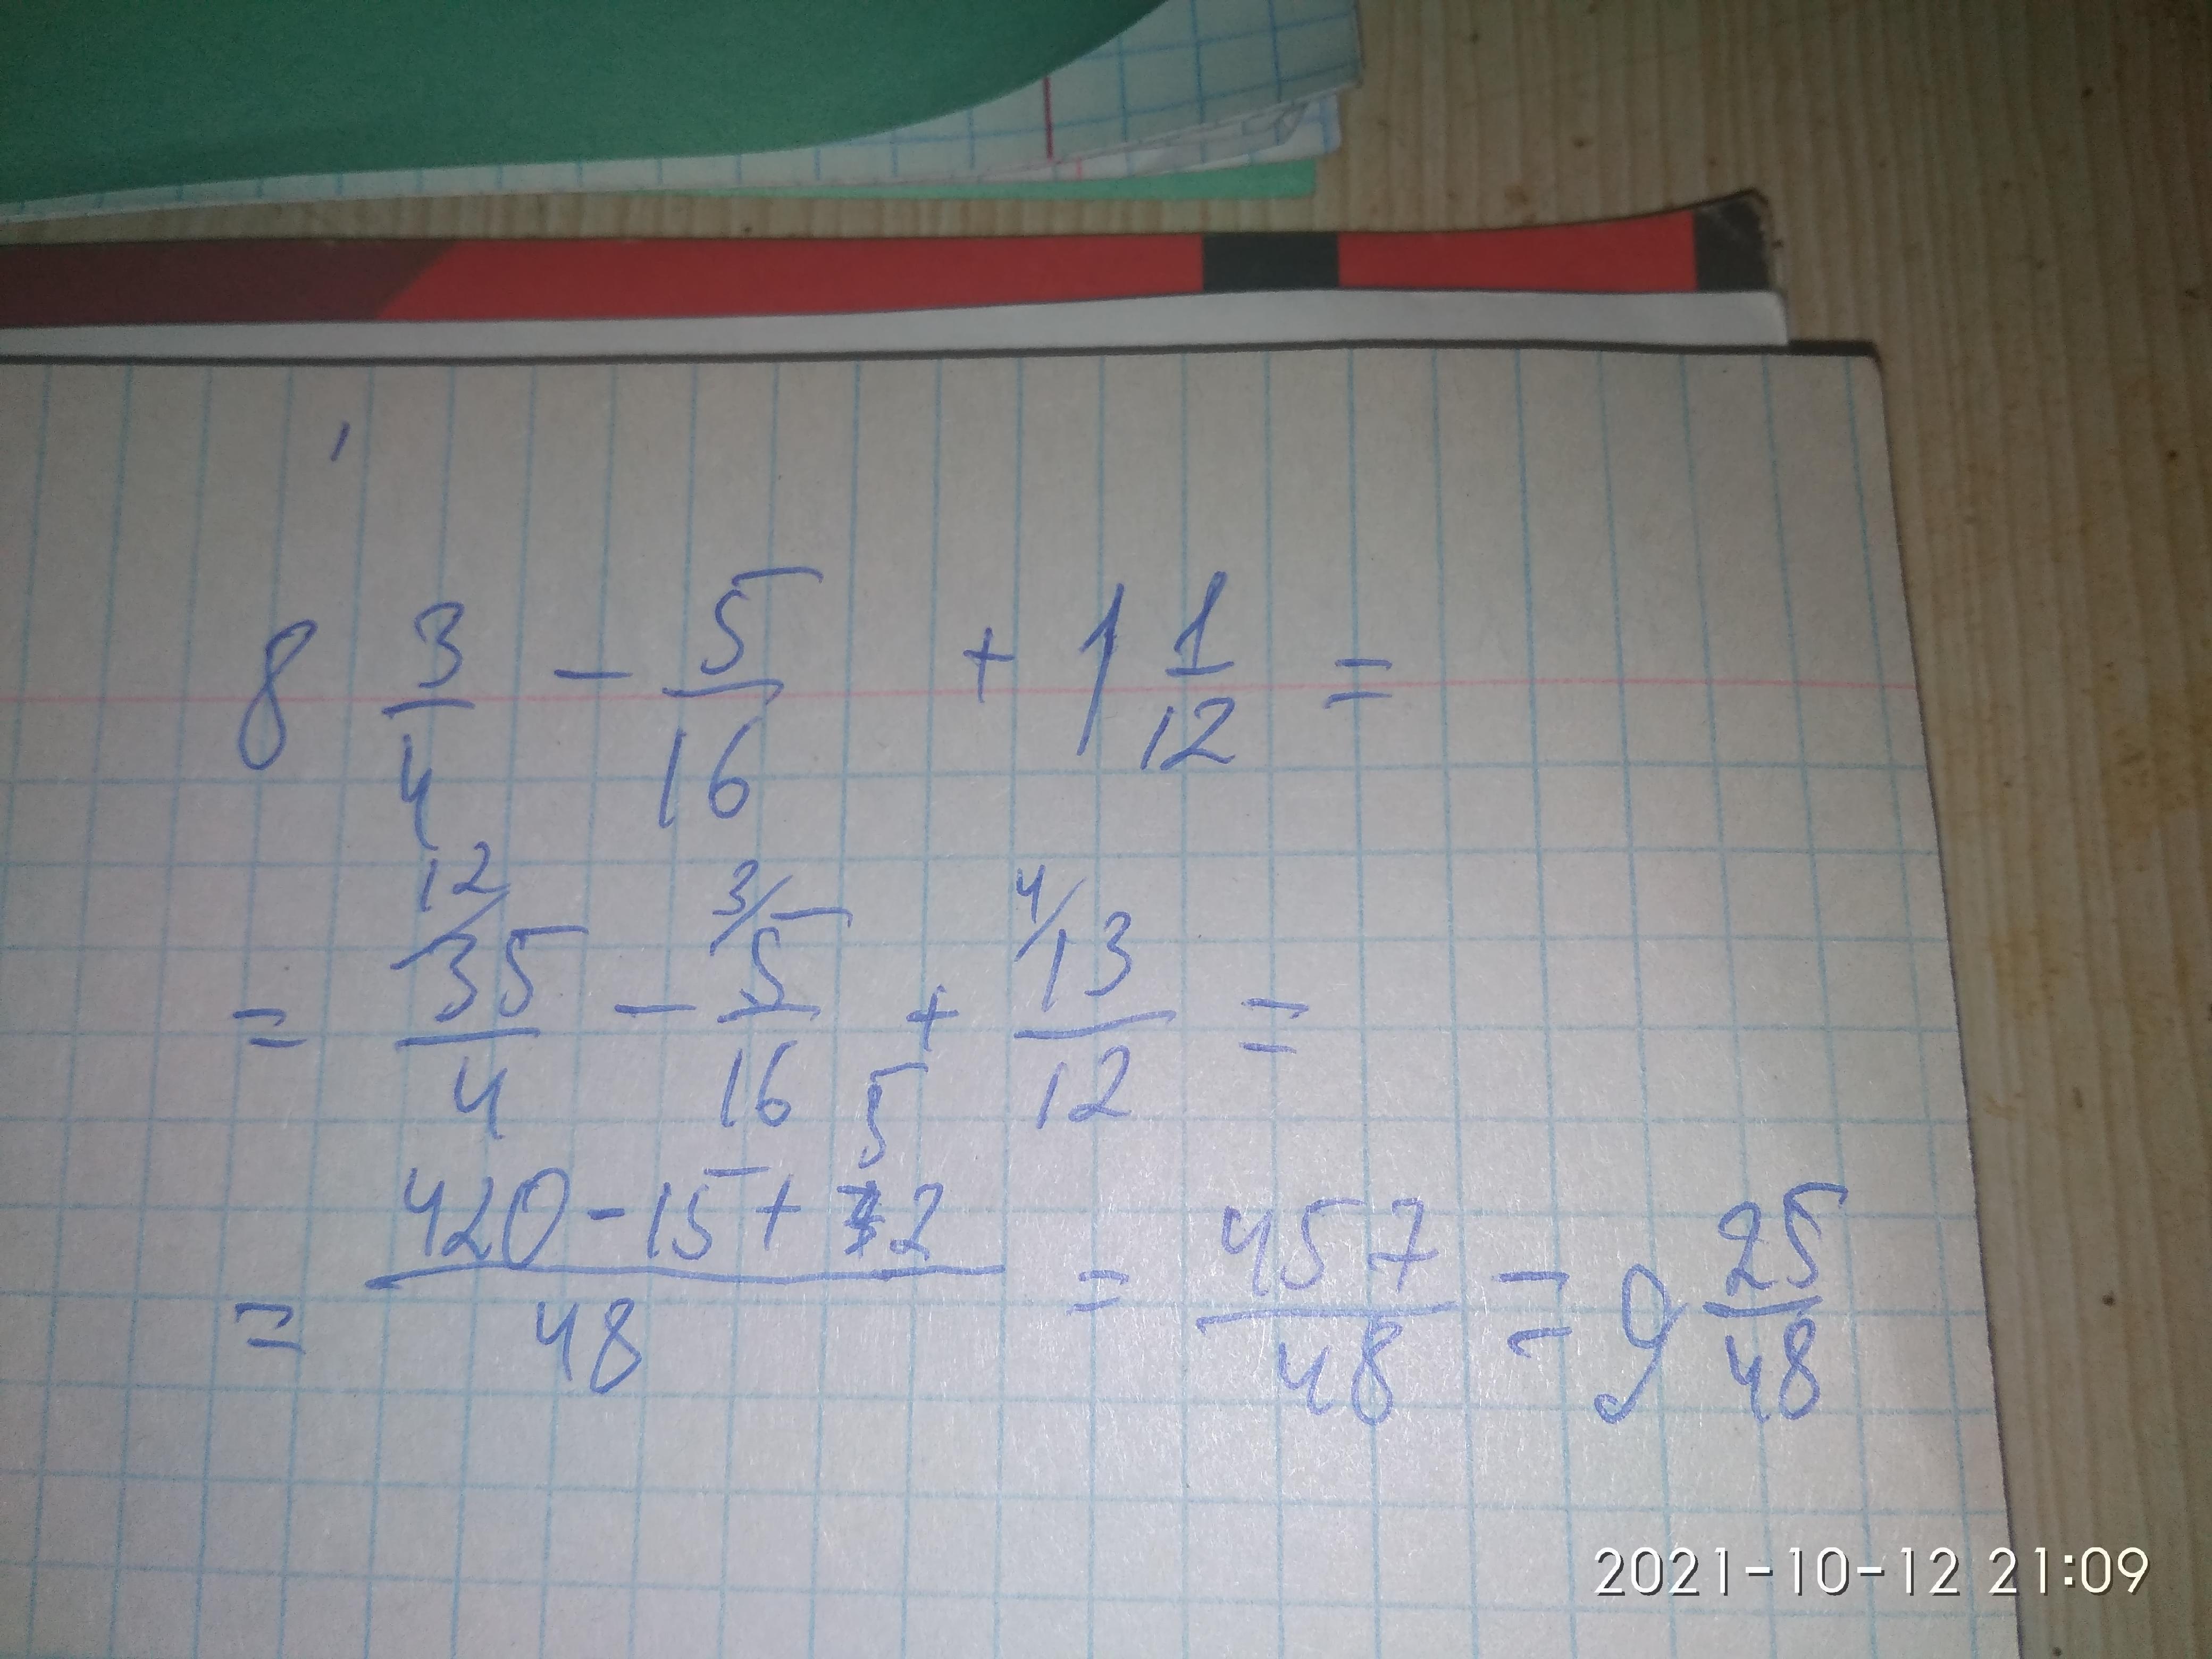 8 3/4 - 5/16 + 1 1/12 =
12/ 3/ 4/
= 35/4 - 5/16 + 13/12 =
5
= (420 - 15 + 2)/48 = 457/48 = 9 25/48
2021-10-12 21:09